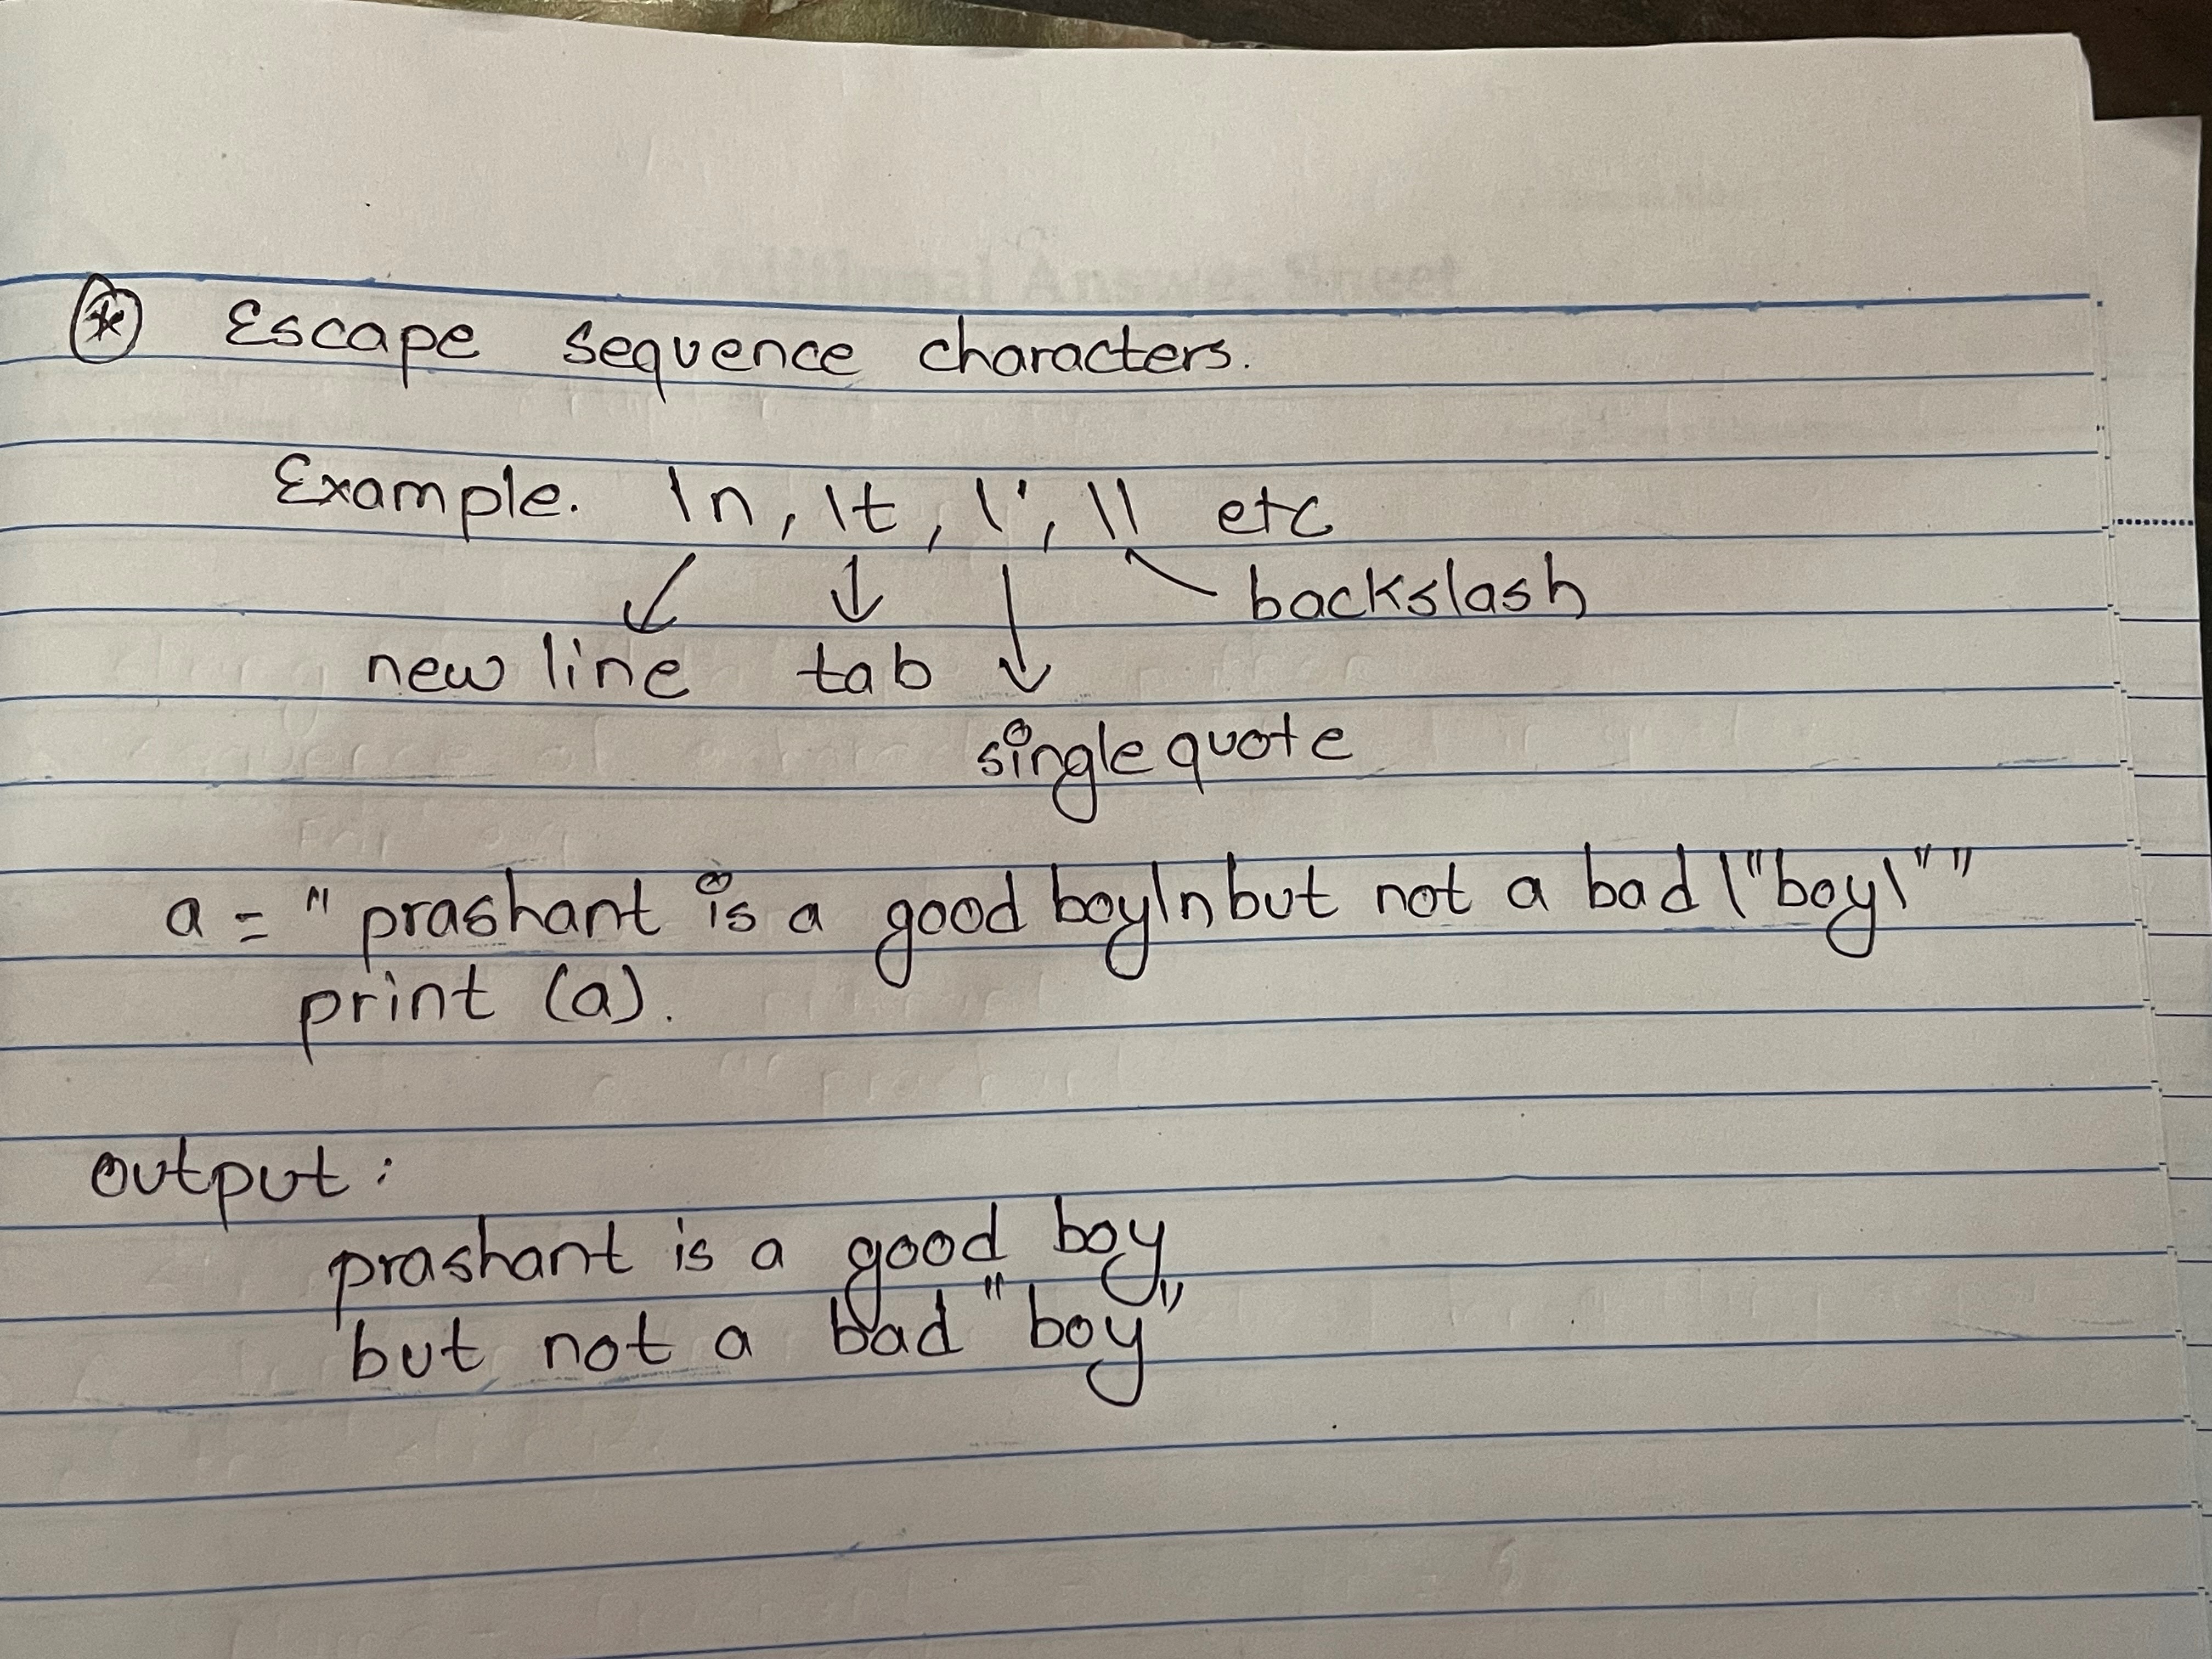 * Escape sequence characters.
Example. \n, \t, \', \\ etc
backslash
new line tab
single quote
a = "prashant is a good boy\nbut not a bad \"boy\""
print (a).
output:
prashant is a good boy
but not a bad "boy"